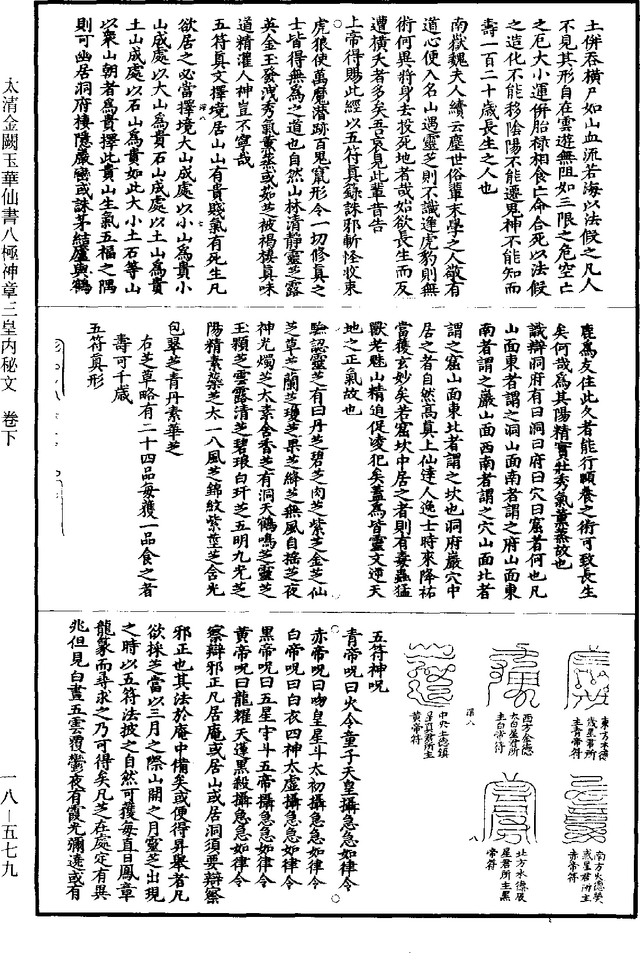 土併吞橫尸如山血流若海以法候之凡人
不見其形自在雲遊無阻如三限之危空亡
之厄大小運併胎祿相食亡命合死以法候
之造化不能移陰陽不能遷鬼神不能知而
壽一百二十歲長生之人也
南嶽魏夫人續云塵世俗輩末學之人欲有
道心便入名山遇靈芝則不識逢虎豹則無
術何異將身去投死地者哉始欲長生而反
遭橫夭者多矣吾哀見此輩昔告
上帝得賜此經以五符真籙誅邪斬怪收束
虎狼使萬魔潛跡百鬼竄形令一切修真之
士皆得無為之道也自然山林清靜靈芝露
英金玉發洩秀氣薰蒸或茹芝被褐棲真味
道精灌人神豈不寧哉
五符真文擇境居山山有貴賤氣有死生凡
欲居之必當擇境大山成處以小山為貴小
山成處以大山為貴石山成處以土山為貴
土山成處以石山為貴如此大小土石等山
以眾山朝者為貴擇此貴山生氣五福之隅
則可幽居洞府棲隱巖巒或誅茅結廬與鶴
鹿為友住此久者能行頤養之術可致長生
矣何哉為其陽精實壯秀氣薰蒸故也
識辯洞府有曰洞曰府曰穴曰窟者何也凡
山面東者謂之洞山面南者謂之府山面東
南者謂之巖山面西南者謂之穴山面北者
謂之窟山面東北者謂之坎也洞府巖穴中
居之者自然高真上仙達人逸士時來降祐
當獲玄妙矣若窟坎中居之者則有毒蟲猛
獸老魅山精迫促凌犯矣蓋為皆靈文逆天
地之正氣故也
驗認靈芝有曰丹芝碧芝肉芝紫芝金芝仙
芝草芝蘭芝瓊芝果芝絳芝無風自搖芝夜
神光燭芝太素含香芝有洞天鶴鳴芝靈芝
玉顆芝雲露清芝碧琅白玕芝五明九光芝
陽精素蘂芝太一八風芝錦紋紫莖芝含光
包翠芝青丹素華芝
右芝草略有二十四品每獲一品食之者
壽可千歲
五符真形
東方木德
歲星君所
主青帝符
南方火德熒
惑星君所主
赤帝符
西方金德
太白星君所
主白帝符
北方水德辰
星君所主黑
帝符
中央土德鎮
星真君所主
黃帝符
五符神呪
青帝呪曰火令童子天皇攝急急如律令
赤帝呪曰吻皇星斗太初攝急急如律令
白帝呪曰白衣四神太虛攝急急如律令
黑帝呪曰五星守斗五帝攝急急如律令
黃帝呪曰龍糴天蓬黑殺攝急急如律令
察辯邪正凡居庵或居山或居洞須要辯察
邪正也其法於庵中備矣或便得昇舉者凡
欲採芝當以三月之際山開之月靈芝出現
之時以五符法披之自然可獲每直日鳳章
龍篆而尋求之乃可得矣凡芝在處定有異
兆但見白晝五雲覆鬱夜有霞光彌遶或有
太清金闕玉華仙書八極神章三皇內秘文 卷下
一八—五七九